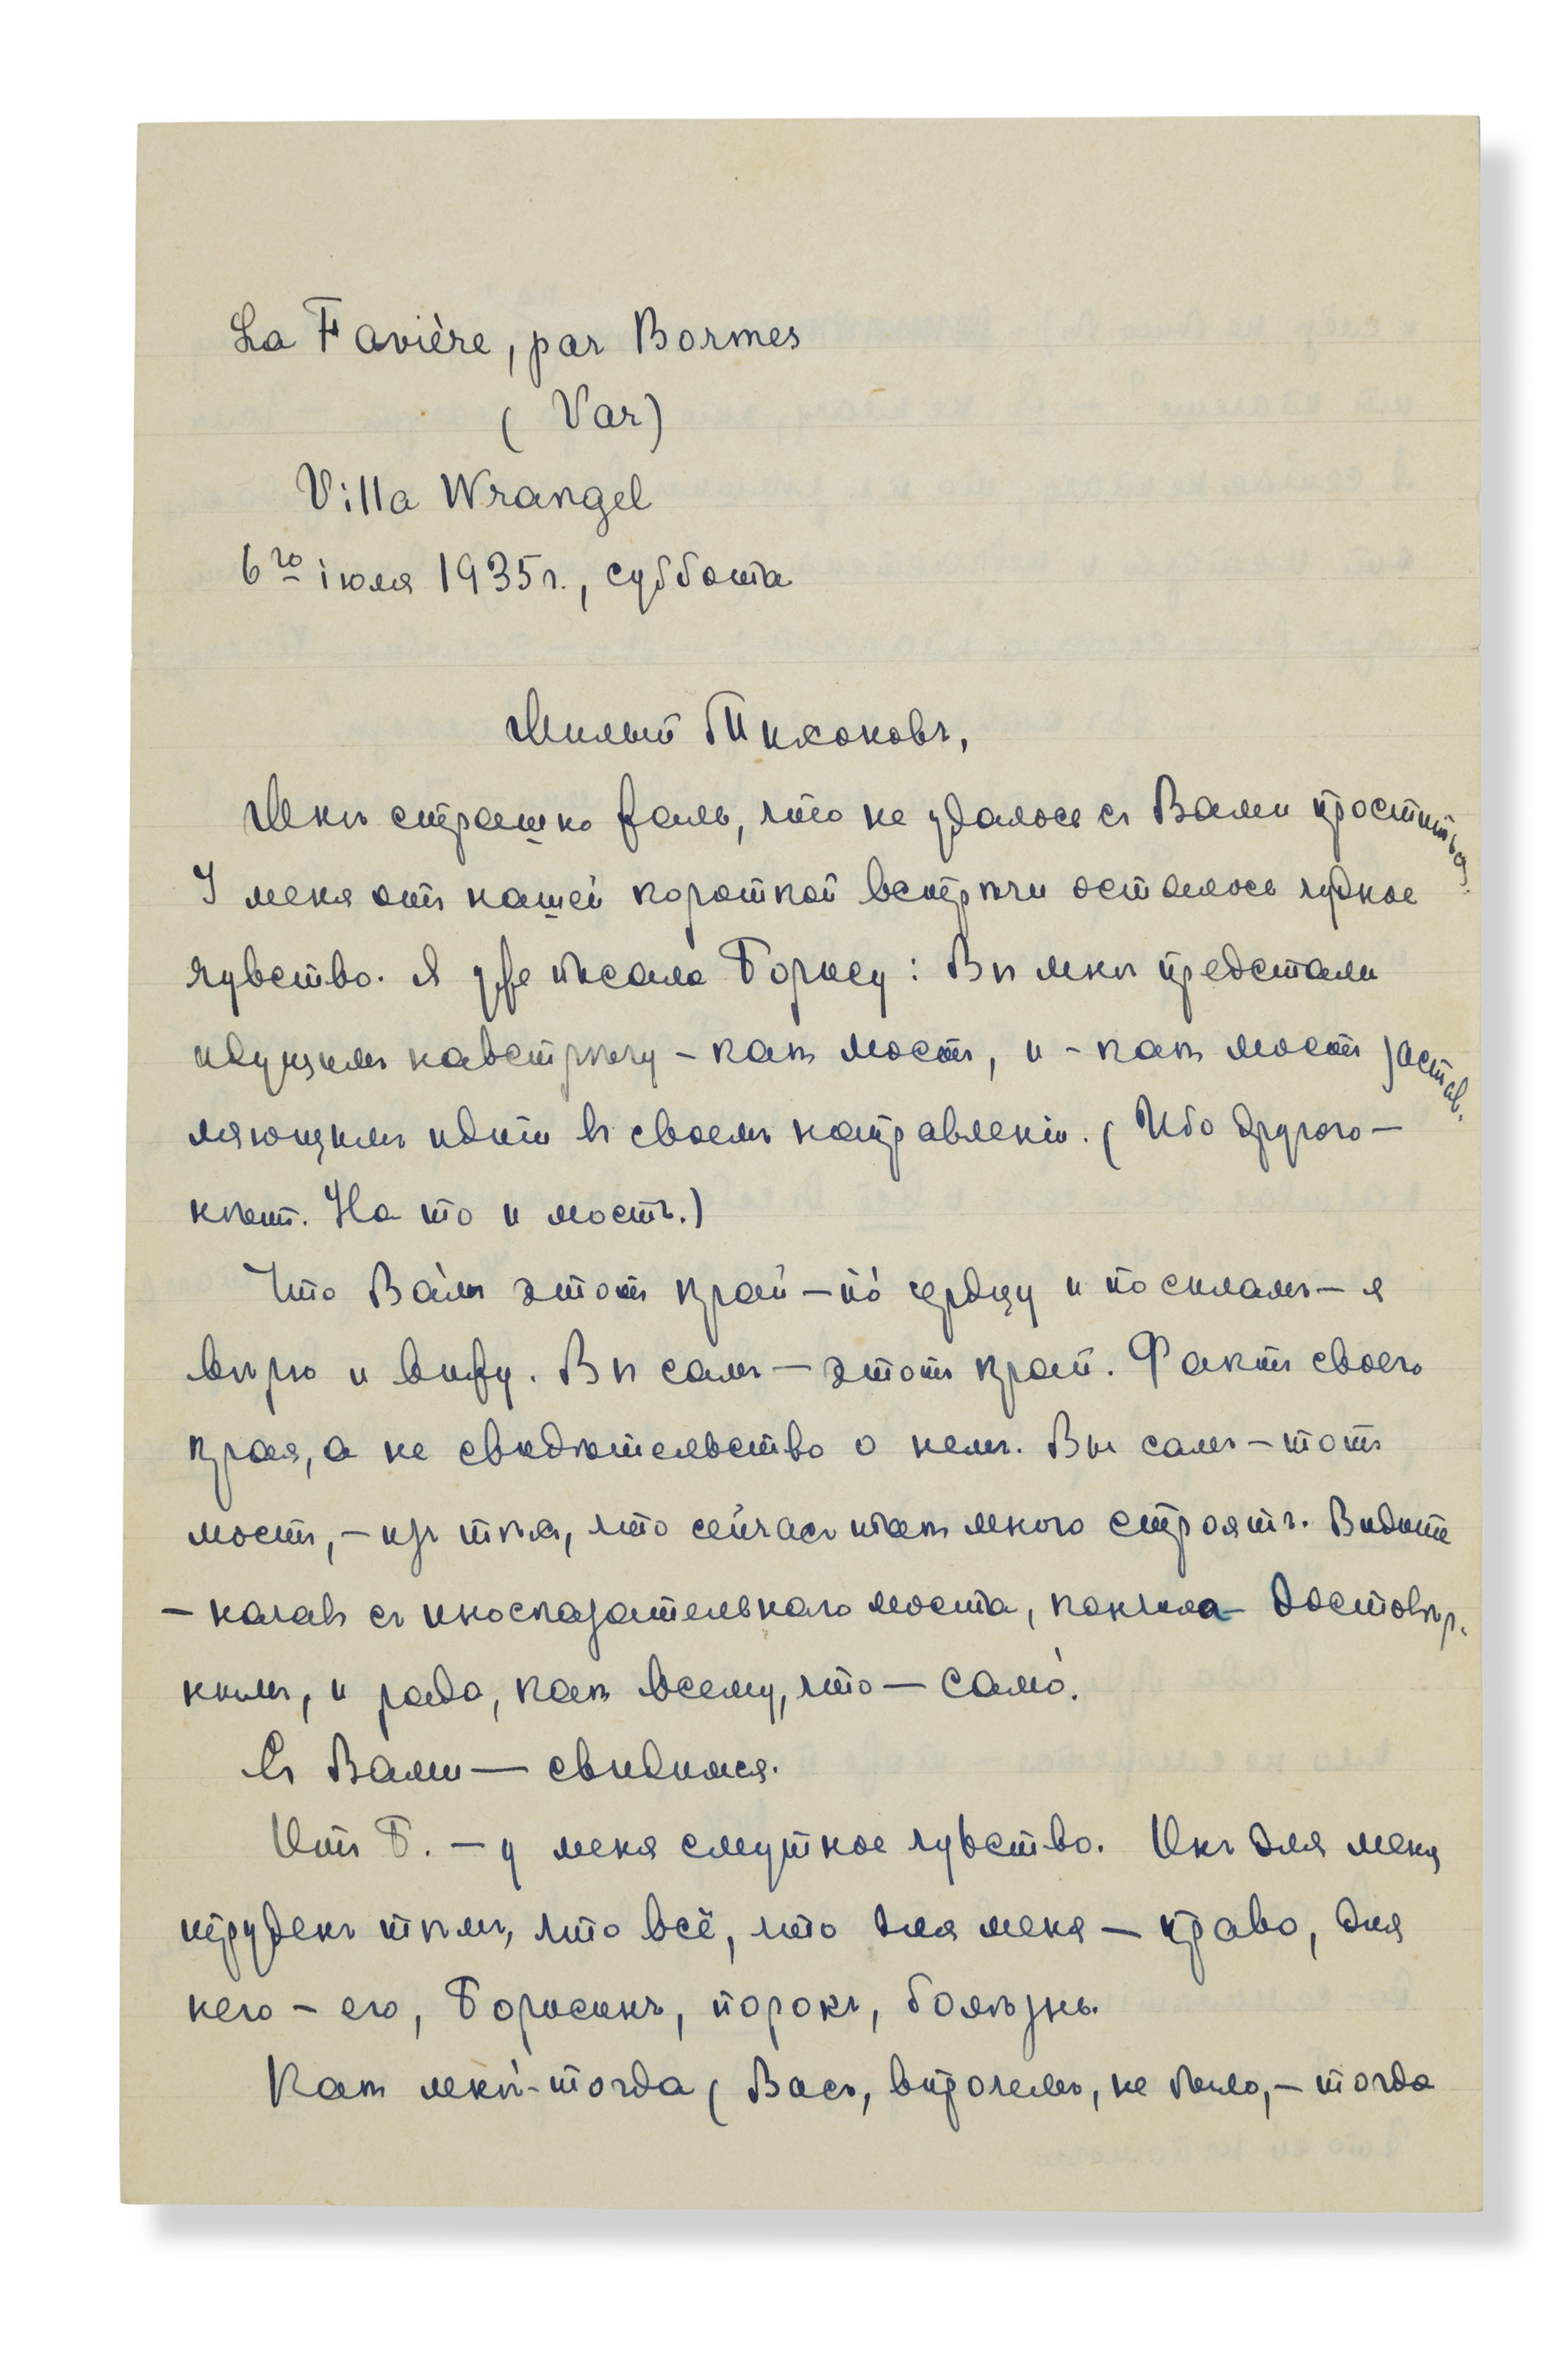 La Favière, par Bormes
( Var)
Villa Wrangel
6го іюля 1935г., суббота
Милый Тихоновъ,
Мнѣ страшно жаль, что не удалось съ Вами проститься.
У меня отъ нашей короткой встрѣчи осталось чудное
чувство. Я уже писала Борису: Вы мнѣ предстали
идущимъ навстрѣчу – какъ мостъ, и – какъ мостъ застав-
ляющимъ идти въ своемъ направленіи. ( Ибо другого –
нѣтъ. На то и мостъ.)
Что Ва́мъ этотъ край – по́ сердцу и по силамъ – я
вѣрю и вижу. Вы самъ – этотъ край. Фактъ своего
края, а не свидѣтельство о немъ. Вы самъ – тотъ
мостъ, – изъ тѣхъ, что сейчасъ такъ много строятъ. Видите
– начавъ съ иносказательнаго моста, кончила – достовѣр-
нымъ, и рада, какъ всему, что – само́.
Съ Вами – свидимся.
Отъ Б. – у меня смутное чувство. Онъ для меня
труденъ тѣмъ, что всё, что для меня – право, для
него – его, Борисинъ, порокъ, болѣзнь.
Какъ мнѣ́-тогда ( Васъ, впрочемъ, не было, – тогда